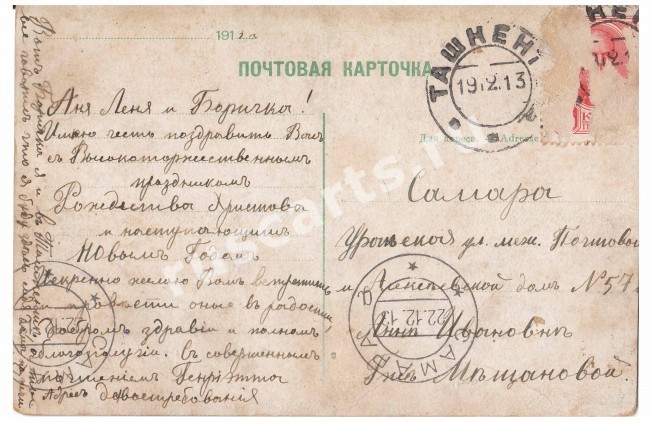 191
ПОЧТОВАЯ КАРТОЧКА
ТАШКЕНТ
19.12.13
Для адреса. — Adresse
Аня Леня и Боричка!
Имею честь поздравить Васъ
съ Высокоторжественнымъ
праздникомъ
Рождества Христова
и наступающимъ
Новымъ Годомъ
Искренно желаю Вамъ встретить
и провести оные въ радости
добромъ здравіи и полномъ
благополучіи. Съ совершеннымъ
почтеніемъ
Адресъ довостребованія
Самара
Уральская ул. меж. Почтовой
и Алексѣевской домъ № 57
Аннѣ Ивановнѣ
Гжѣ Мѣщановой.
САМАРА
22.12.13
Вотъ и я въ